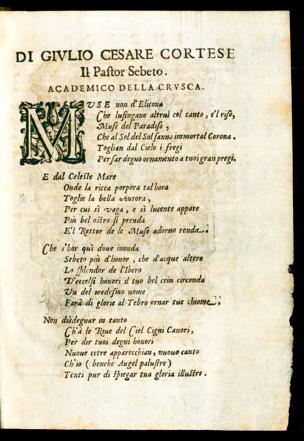 DI GIVLIO CESARE CORTESE
Il Pastor Sebeto.
ACADEMICO DELLA CRVSCA.
MVSE non d'Elicona
Che lusingano altrui col canto, e'l riso,
Muse del Paradiso,
Che al Sol del Sol fanno immortal Corona.
Toglian dal Cielo i fregi
Per far degno ornamento a tuoi gran pregi.
E dal Celeste Mare
Onde la ricca porpora tal'hora
Toglie la bella Aurora,
Per cui sì vaga, e sì lucente appare
Più bel ostro si prenda
E'l Rettor de le Muse adorno renda.
Che s'hor quì doue inonda
Sebeto più d'honor, che d'acque altero
Lo splendor de l'Ibero
D'eccelsi honori il tuo bel crin circonda
Vn del medesmo nome
Farà di glorie al Tebro ornar tue chiome.
Non disdegnar in tanto
Ch'à le Riue del Ciel Cigni Canori,
Per dir tuoi degni honori
Nuoue cetre apparecchian, nuouo canto
Ch'io (benche Augel palustre)
Tenti pur di spiegar tua gloria illustre.